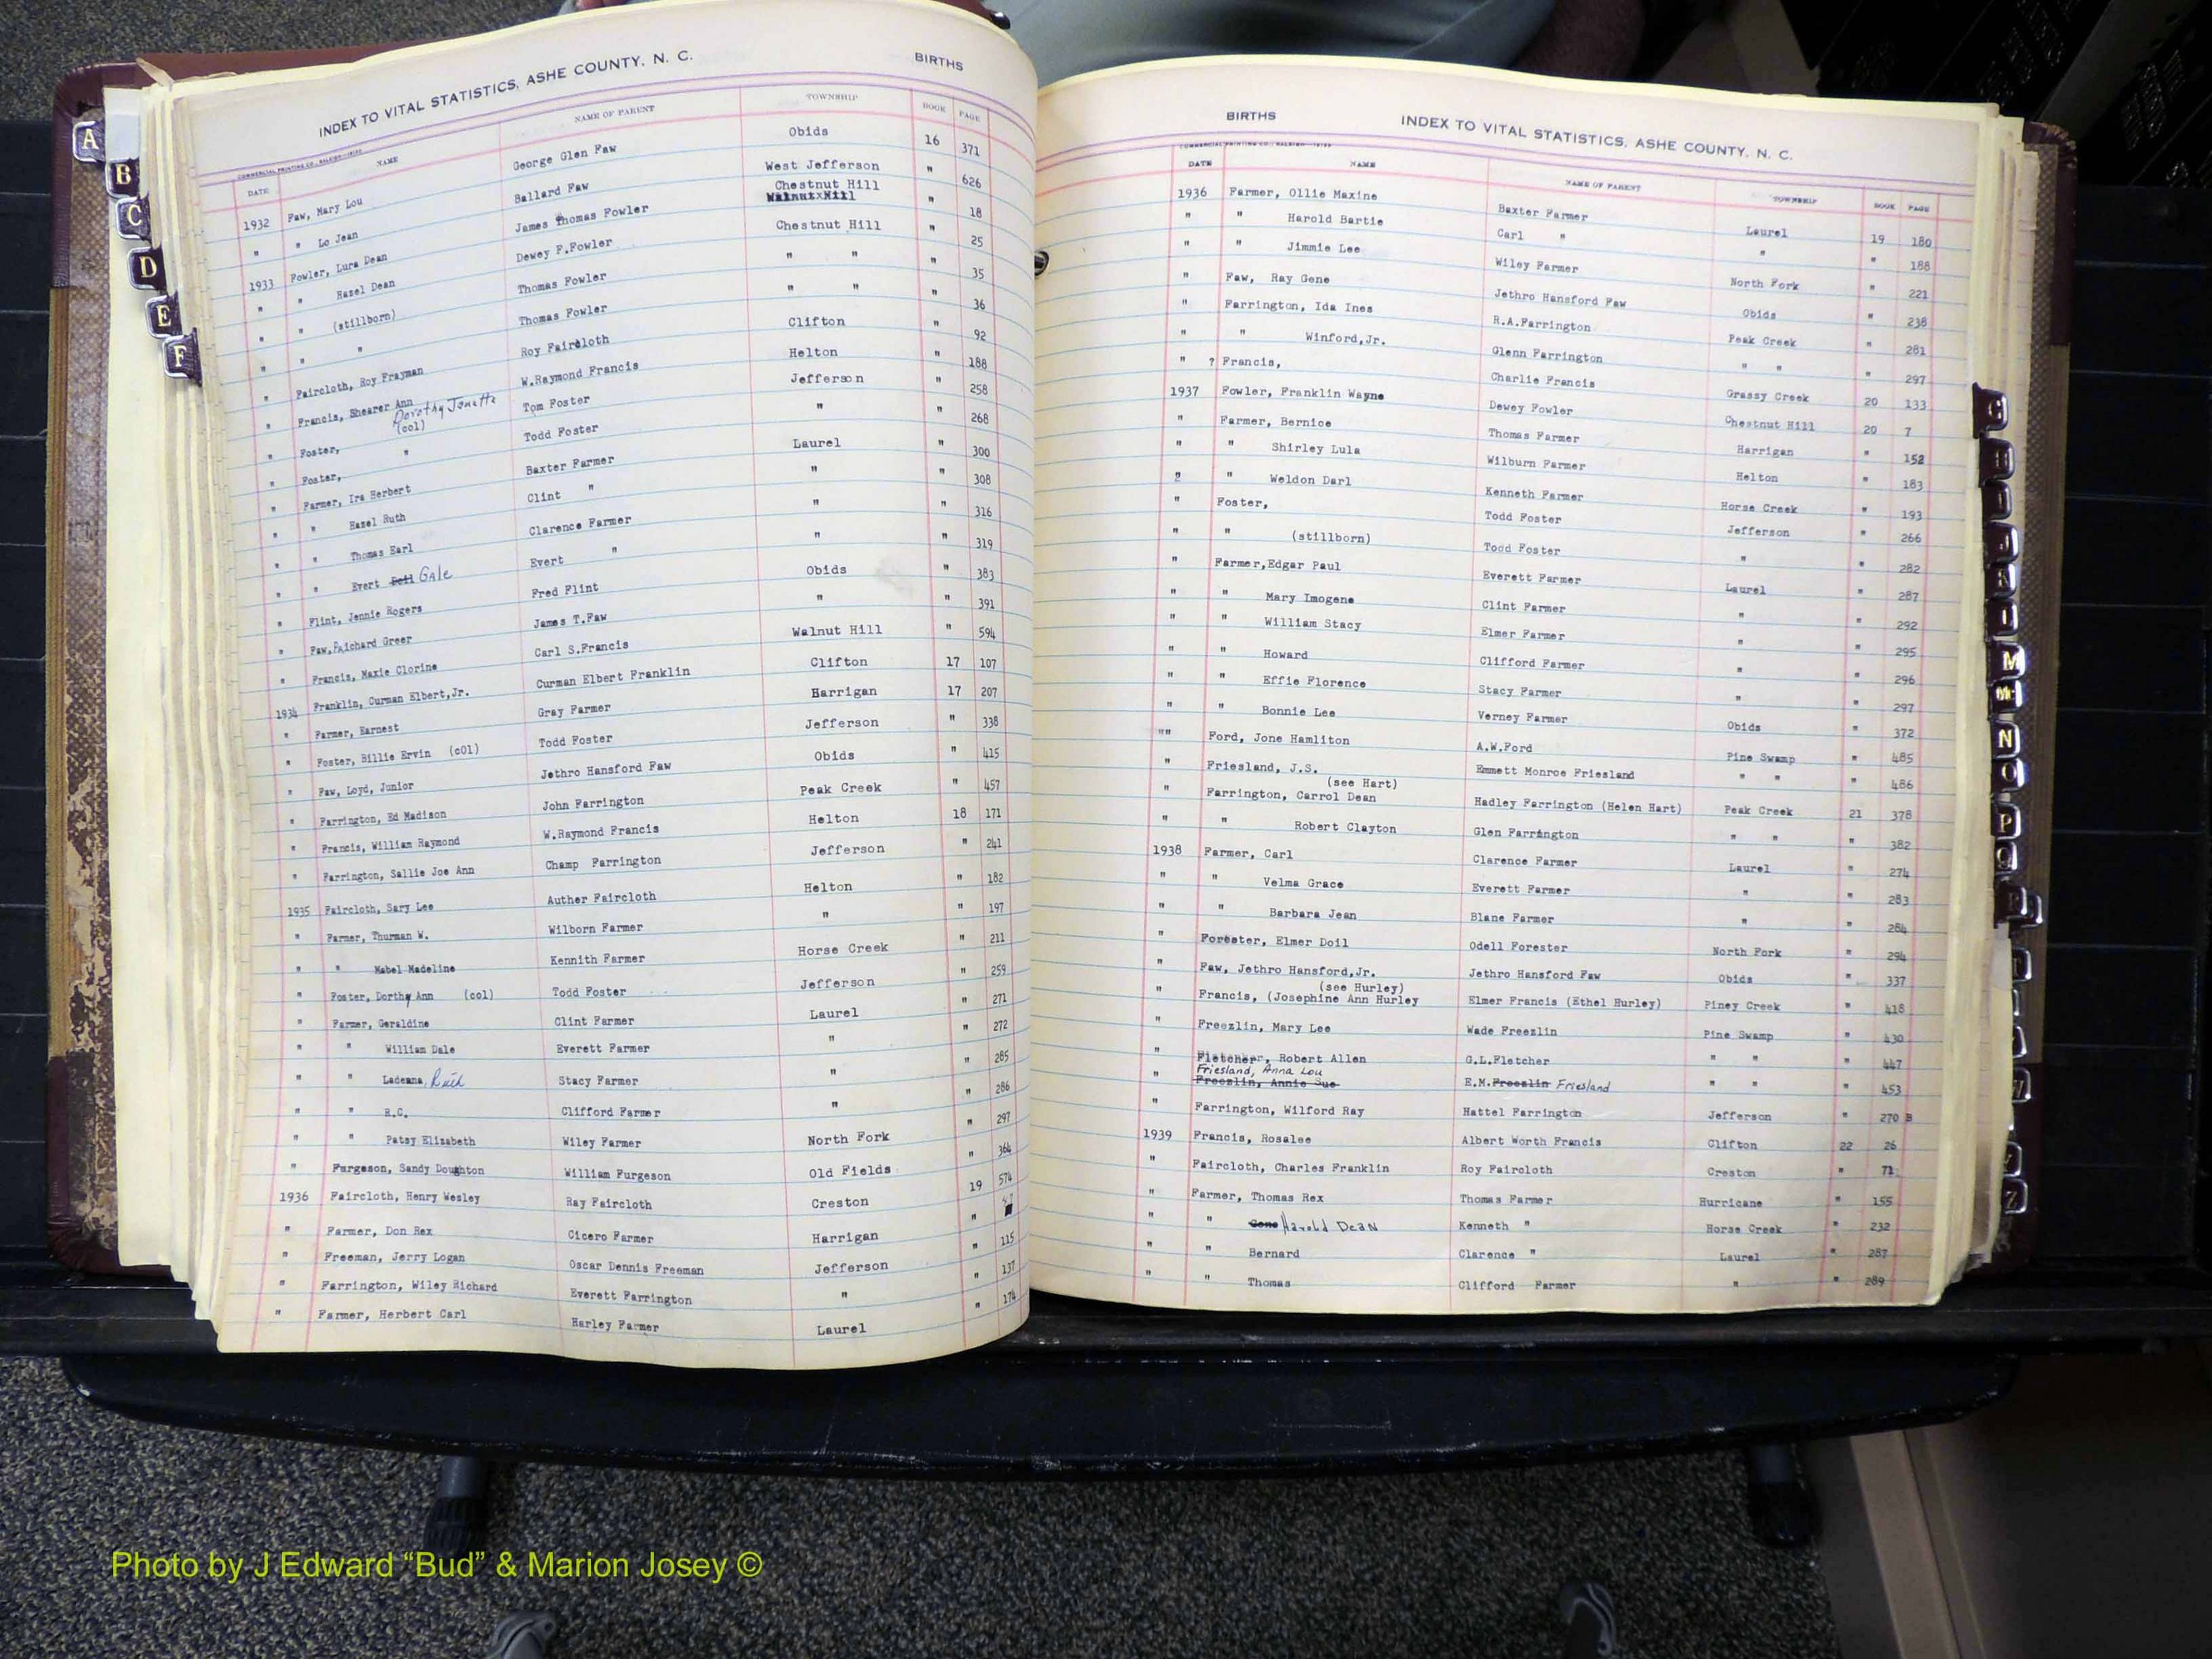 A
B
C
D
E
F
INDEX TO VITAL STATISTICS, ASHE COUNTY, N. C. BIRTHS
DATE NAME NAME OF PARENT TOWNSHIP BOOK PAGE
1932 Faw, Mary Lou George Glen Faw Obids 16 371
" " Lo Jean Ballard Faw West Jefferson " 626
1933 Fowler, Lura Dean James Thomas Fowler Chestnut Hill " 18
" " Hazel Dean Dewey F.Fowler Chestnut Hill " 25
" " (stillborn) Thomas Fowler " " " 35
" " " Thomas Fowler " " " 36
" Faircloth, Roy Frayman Roy Faircloth Clifton " 92
" Francis, Shearer Ann W.Raymond Francis Helton " 188
" Foster, Dorothy Jonetta (col) Tom Foster Jefferson " 258
" Foster, " Todd Foster " " 268
" Farmer, Ira Herbert Baxter Farmer Laurel " 300
" " Hazel Ruth Clint " " " 308
" " Thomas Earl Clarence Farmer " " 316
" " Evert Gale Evert " " " 319
" Flint, Jennie Rogers Fred Flint Obids " 383
" Faw, Richard Greer James T.Faw " " 391
" Francis, Maxie Clorine Carl S.Francis Walnut Hill " 594
1934 Franklin, Curman Elbert,Jr. Curman Elbert Franklin Clifton 17 107
" Farmer, Earnest Gray Farmer Harrigan 17 207
" Foster, Billie Ervin (c0l) Todd Foster Jefferson " 338
" Faw, Loyd, Junior Jethro Hansford Faw Obids " 415
" Farrington, Ed Madison John Farrington Peak Creek " 457
" Francis, William Raymond W.Raymond Francis Helton 18 171
" Farrington, Sallie Joe Ann Champ Farrington Jefferson " 241
1935 Faircloth, Sary Lee Auther Faircloth Helton " 182
" Farmer, Thurman W. Wilborn Farmer " " 197
" " Mabel Madeline Kennith Farmer Horse Creek " 211
" Foster, Dorthy Ann (col) Todd Foster Jefferson " 259
" Farmer, Geraldine Clint Farmer Laurel " 271
" " William Dale Everett Farmer " " 272
" " Ladeana, Ruth Stacy Farmer " " 285
" " R.C. Clifford Farmer " " 286
" " Patsy Elizabeth Wiley Farmer North Fork " 297
" Furgeson, Sandy Doughton William Furgeson Old Fields " 364
1936 Faircloth, Henry Wesley Ray Faircloth Creston 19 574
" Farmer, Don Rex Cicero Farmer Harrigan "
" Freeman, Jerry Logan Oscar Dennis Freeman Jefferson " 115
" Farrington, Wiley Richard Everett Farrington " " 137
" Farmer, Herbert Carl Harley Farmer Laurel " 174
BIRTHS INDEX TO VITAL STATISTICS, ASHE COUNTY, N. C.
DATE NAME NAME OF PARENT TOWNSHIP BOOK PAGE
1936 Farmer, Ollie Maxine Baxter Farmer Laurel 19 180
" " Harold Bartie Carl " " " 188
" " Jimmie Lee Wiley Farmer North Fork " 221
" Faw, Ray Gene Jethro Hansford Faw Obids " 238
" Farrington, Ida Ines R.A.Farrington Peak Creek " 281
" " Winford,Jr. Glenn Farrington " " " 297
" ? Francis, Charlie Francis Grassy Creek 20 133
1937 Fowler, Franklin Wayne Dewey Fowler Chestnut Hill 20 7
" Farmer, Bernice Thomas Farmer Harrigan " 152
" " Shirley Lula Wilburn Farmer Helton " 183
" " Weldon Darl Kenneth Farmer Horse Creek " 193
" Foster, Todd Foster Jefferson " 266
" " (stillborn) Todd Foster " " 282
" Farmer,Edgar Paul Everett Farmer Laurel " 287
" " Mary Imogene Clint Farmer " " 292
" " William Stacy Elmer Farmer " " 295
" " Howard Clifford Farmer " " 296
" " Effie Florence Stacy Farmer " " 297
" " Bonnie Lee Verney Farmer Obids " 372
"" Ford, Jone Hamliton A.W.Ford Pine Swamp " 485
" Friesland, J.S. Emmett Monroe Friesland " " " 486
(see Hart)
" Farrington, Carrol Dean Hadley Farrington (Helen Hart) Peak Creek 21 378
" " Robert Clayton Glen Farrington " " " 382
1938 Farmer, Carl Clarence Farmer Laurel " 274
" " Velma Grace Everett Farmer " " 283
" " Barbara Jean Blane Farmer " " 284
" Forester, Elmer Doil Odell Forester North Fork " 294
" Faw, Jethro Hansford,Jr. Jethro Hansford Faw Obids " 337
(see Hurley)
" Francis, (Josephine Ann Hurley Elmer Francis (Ethel Hurley) Piney Creek " 418
" Freezlin, Mary Lee Wade Freezlin Pine Swamp " 430
" Fletcher, Robert Allen G.L.Fletcher " " " 447
Friesland, Anna Lou
" Freezlin, Annie Sue E.M.Freezlin Friesland " " " 453
" Farrington, Wilford Ray Hattel Farrington Jefferson " 270 B
1939 Francis, Rosalee Albert Worth Francis Clifton 22 26
" Faircloth, Charles Franklin Roy Faircloth Creston " 71
" Farmer, Thomas Rex Thomas Farmer Hurricane " 155
" " Gene Harold Dean Kenneth " Horse Creek " 232
" " Bernard Clarence " Laurel " 287
" " Thomas Clifford Farmer " " 289
G
H
I
J
K
L
M
Mc
N
O
P
Q
Z
Photo by J Edward “Bud” & Marion Josey ©